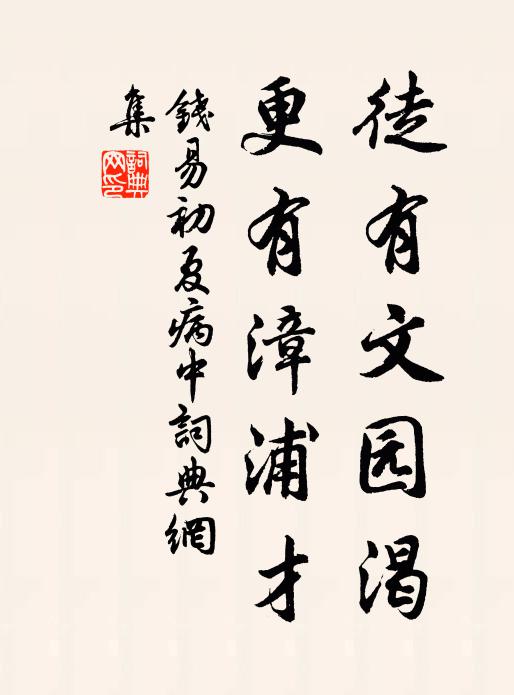 徒有文园渴
更有漳浦才
錢易初夏病中詞典網
集
詞典
网印